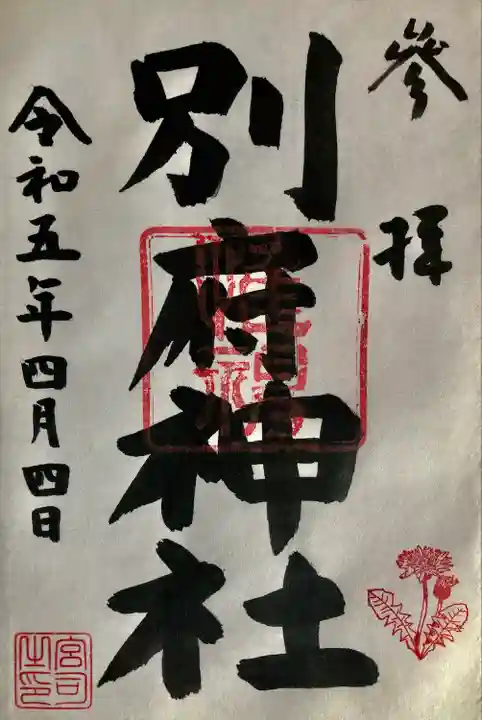 參拝
別府神社
令和五年四月四日
宮司之印